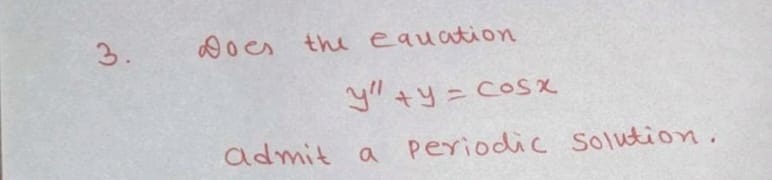 3. Does the equation
y'' + y = cosx
admit a periodic solution.